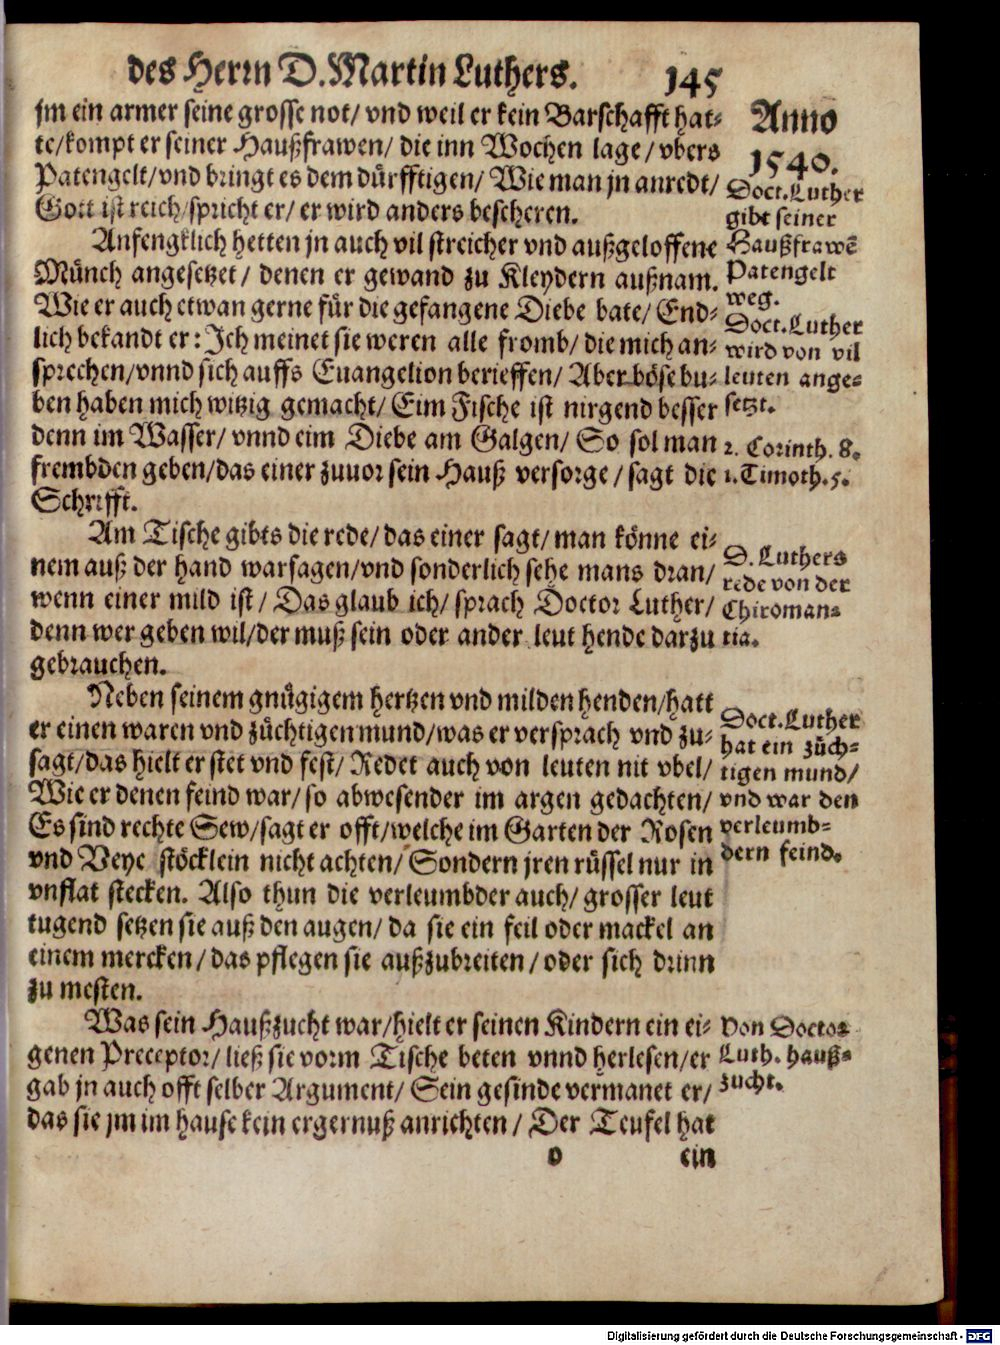 des Herrn D. Martin Luthers. 145
jm ein armer seine grosse not/ vnd weil er kein Barschafft hat-
te/kompt er seiner Haußfrawen/ die inn Wochen lage/ vbers
Patengelt/vnd bringt es dem dürfftigen/ Wie man jn anredt/
Gott ist reich/spricht er/ er wird anders bescheren.
Anfengklich hetten jn auch vil streicher vnd außgeloffene
Münch angesetzet/ denen er gewand zu Kleydern außnam.
Wie er auch etwan gerne für die gefangene Diebe bate/ End-
lich bekandt er: Ich meinet sie weren alle fromb/ die mich an-
sprechen/vnnd sich auffs Euangelion berieffen/ Aber böse bu-
ben haben mich witzig gemacht/ Eim Fische ist nirgend besser
denn im Wasser/ vnnd eim Diebe am Galgen/ So sol man
frembden geben/das einer zuuor sein Hauß versorge/ sagt die
Schrifft.
Am Tische gibts die rede/ das einer sagt/ man könne ei-
nem auß der hand warsagen/vnd sonderlich sehe mans dran/
wenn einer mild ist/ Das glaub ich/ sprach Doctor Luther/
denn wer geben wil/der muß sein oder ander leut hende darzu
gebrauchen.
Neben seinem gnügigem hertzen vnd milden henden/hatt
er einen waren vnd züchtigen mund/was er versprach vnd zu-
sagt/das hielt er stet vnd fest/ Redet auch von leuten nit vbel/
Wie er denen feind war/ so abwesender im argen gedachten/
Es sind rechte Sew/sagt er offt/welche im Garten der Rosen
vnd Veye stöcklein nicht achten/ Sondern jren rüssel nur in
vnflat stecken. Also thun die verleumbder auch/ grosser leut
tugend setzen sie auß den augen/ da sie ein feil oder mackel an
einem mercken/ das pflegen sie außzubreiten/ oder sich drinn
zu mesten.
Was sein Haußzucht war/hielt er seinen Kindern ein ei-
genen Preceptor/ ließ sie vorm Tische beten vnnd herlesen/er
gab jn auch offt selber Argument/ Sein gesinde vermanet er/
das sie jm im hause kein ergernuß anrichten/ Der Teufel hat
o ein
Anno
1540.
Doct. Luther
gibt seiner
Haußfrawē
Patengelt
weg.
Doct. Luther
wird von vil
leuten ange-
setzt.
2. Corinth. 8.
1. Timoth. 5.
D. Luthers
rede von der
Chiroman-
tia.
Doct. Luther
hat ein züch-
tigen mund/
vnd war den
verleumb-
dern feind.
Von Doctor
Luth. hauß-
zucht.
Digitalisierung gefördert durch die Deutsche Forschungsgemeinschaft - DFG